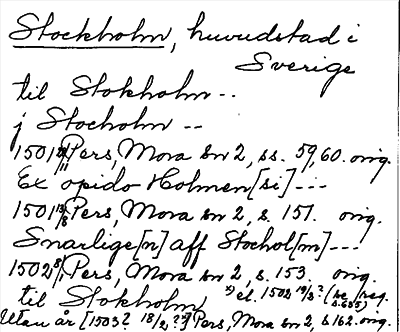 Stockholm, huvudstad i
Sverige
til Stokholm --
j Stocholm --
1501 Pers, Mora bn 2, ss. 59, 60. orig.
Ex opido Holmen [si] ---
1501 Pers, Mora bn 2, s. 151. orig.
Snarlige[n] aff Stochol[m] ---
1502 8/1 Pers, Mora bn 2, s. 153. orig.
til Stokholm x) el. 1502 19/3? (se reg. s. 635)
Utan år [1503? 18/2?] Pers, Mora bn 2, s. 162. orig.